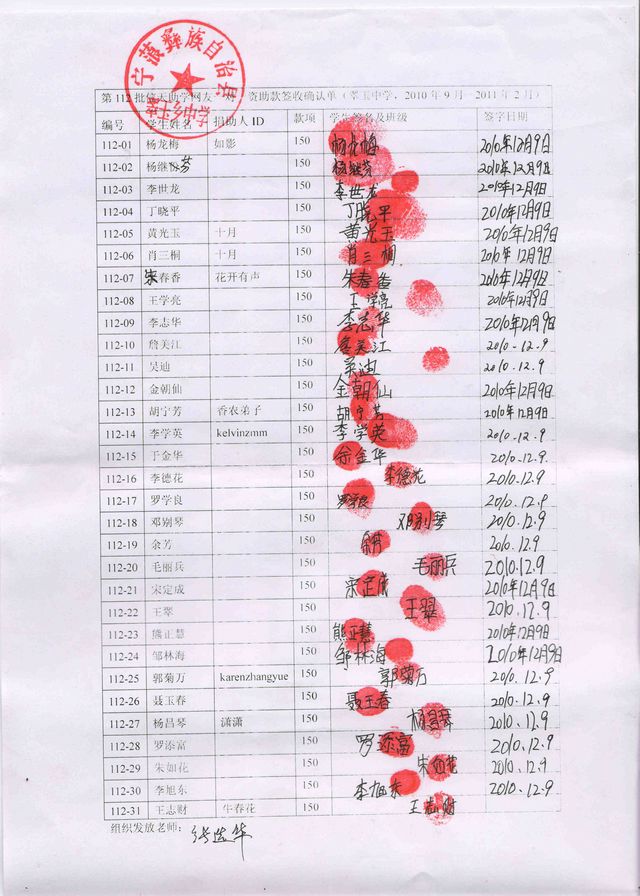 宁蒗彝族自治县
第112批信天助学网友一对一资助款签收确认单（翠玉中学，2010年9月—2011年2月）
编号 学生姓名 捐助人ID 款项 学生签名及班级 签字日期
112-01 杨龙梅 如影 150 杨龙梅 2010年12月9日
112-02 杨继芬 150 杨继芬 2010年12月9日
112-03 李世龙 150 李世龙 2010年12月9日
112-04 丁晓平 150 丁晓平 2010年12月9日
112-05 黄光玉 十月 150 黄光玉 2010年12月9日
112-06 肖三桐 十月 150 肖三桐 2010年12月9日
112-07 朱春香 花开有声 150 朱春香 2010年12月9日
112-08 王学亮 150 王学亮 2010年12月9日
112-09 李志华 150 李志华 2010年12月9日
112-10 詹美江 150 詹美江 2010.12.9
112-11 吴迪 150 吴迪 2010.12.9
112-12 金朝仙 150 金朝仙 2010年12月9日
112-13 胡宁芳 香农弟子 150 胡宁芳 2010年12月9日
112-14 李学英 kelvinzmm 150 李学英 2010.12.9
112-15 于金华 150 余金华 2010.12.9
112-16 李德花 150 李德花 2010.12.9
112-17 罗学良 150 罗学良 2010.12.9
112-18 邓别琴 150 邓别琴 2010.12.9
112-19 余芳 150 余芳 2010.12.9
112-20 毛丽兵 150 毛丽兵 2010.12.9
112-21 宋定成 150 宋定成 2010年12月9日
112-22 王翠 150 王翠 2010.12.9
112-23 熊正慧 150 熊正慧 2010年12月9日
112-24 邹林海 150 邹林海 2010年12月9日
112-25 郭菊万 karenzhangyue 150 郭菊万 2010.12.9
112-26 聂玉春 150 聂玉春 2010.12.9
112-27 杨昌琴 潇潇 150 杨昌琴 2010.12.9
112-28 罗添富 150 罗添富 2010.12.9
112-29 朱如花 150 朱如花 2010.12.9
112-30 李旭东 150 李旭东 2010.12.9
112-31 王志财 牛春花 150 王志财
组织发放老师：